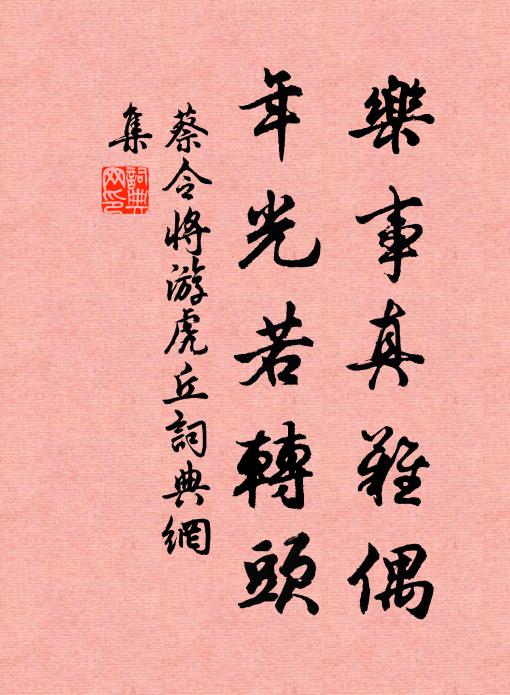 樂事真難偶
年光若轉頭
蔡令將游虎丘詞典網
集
詞典
网印